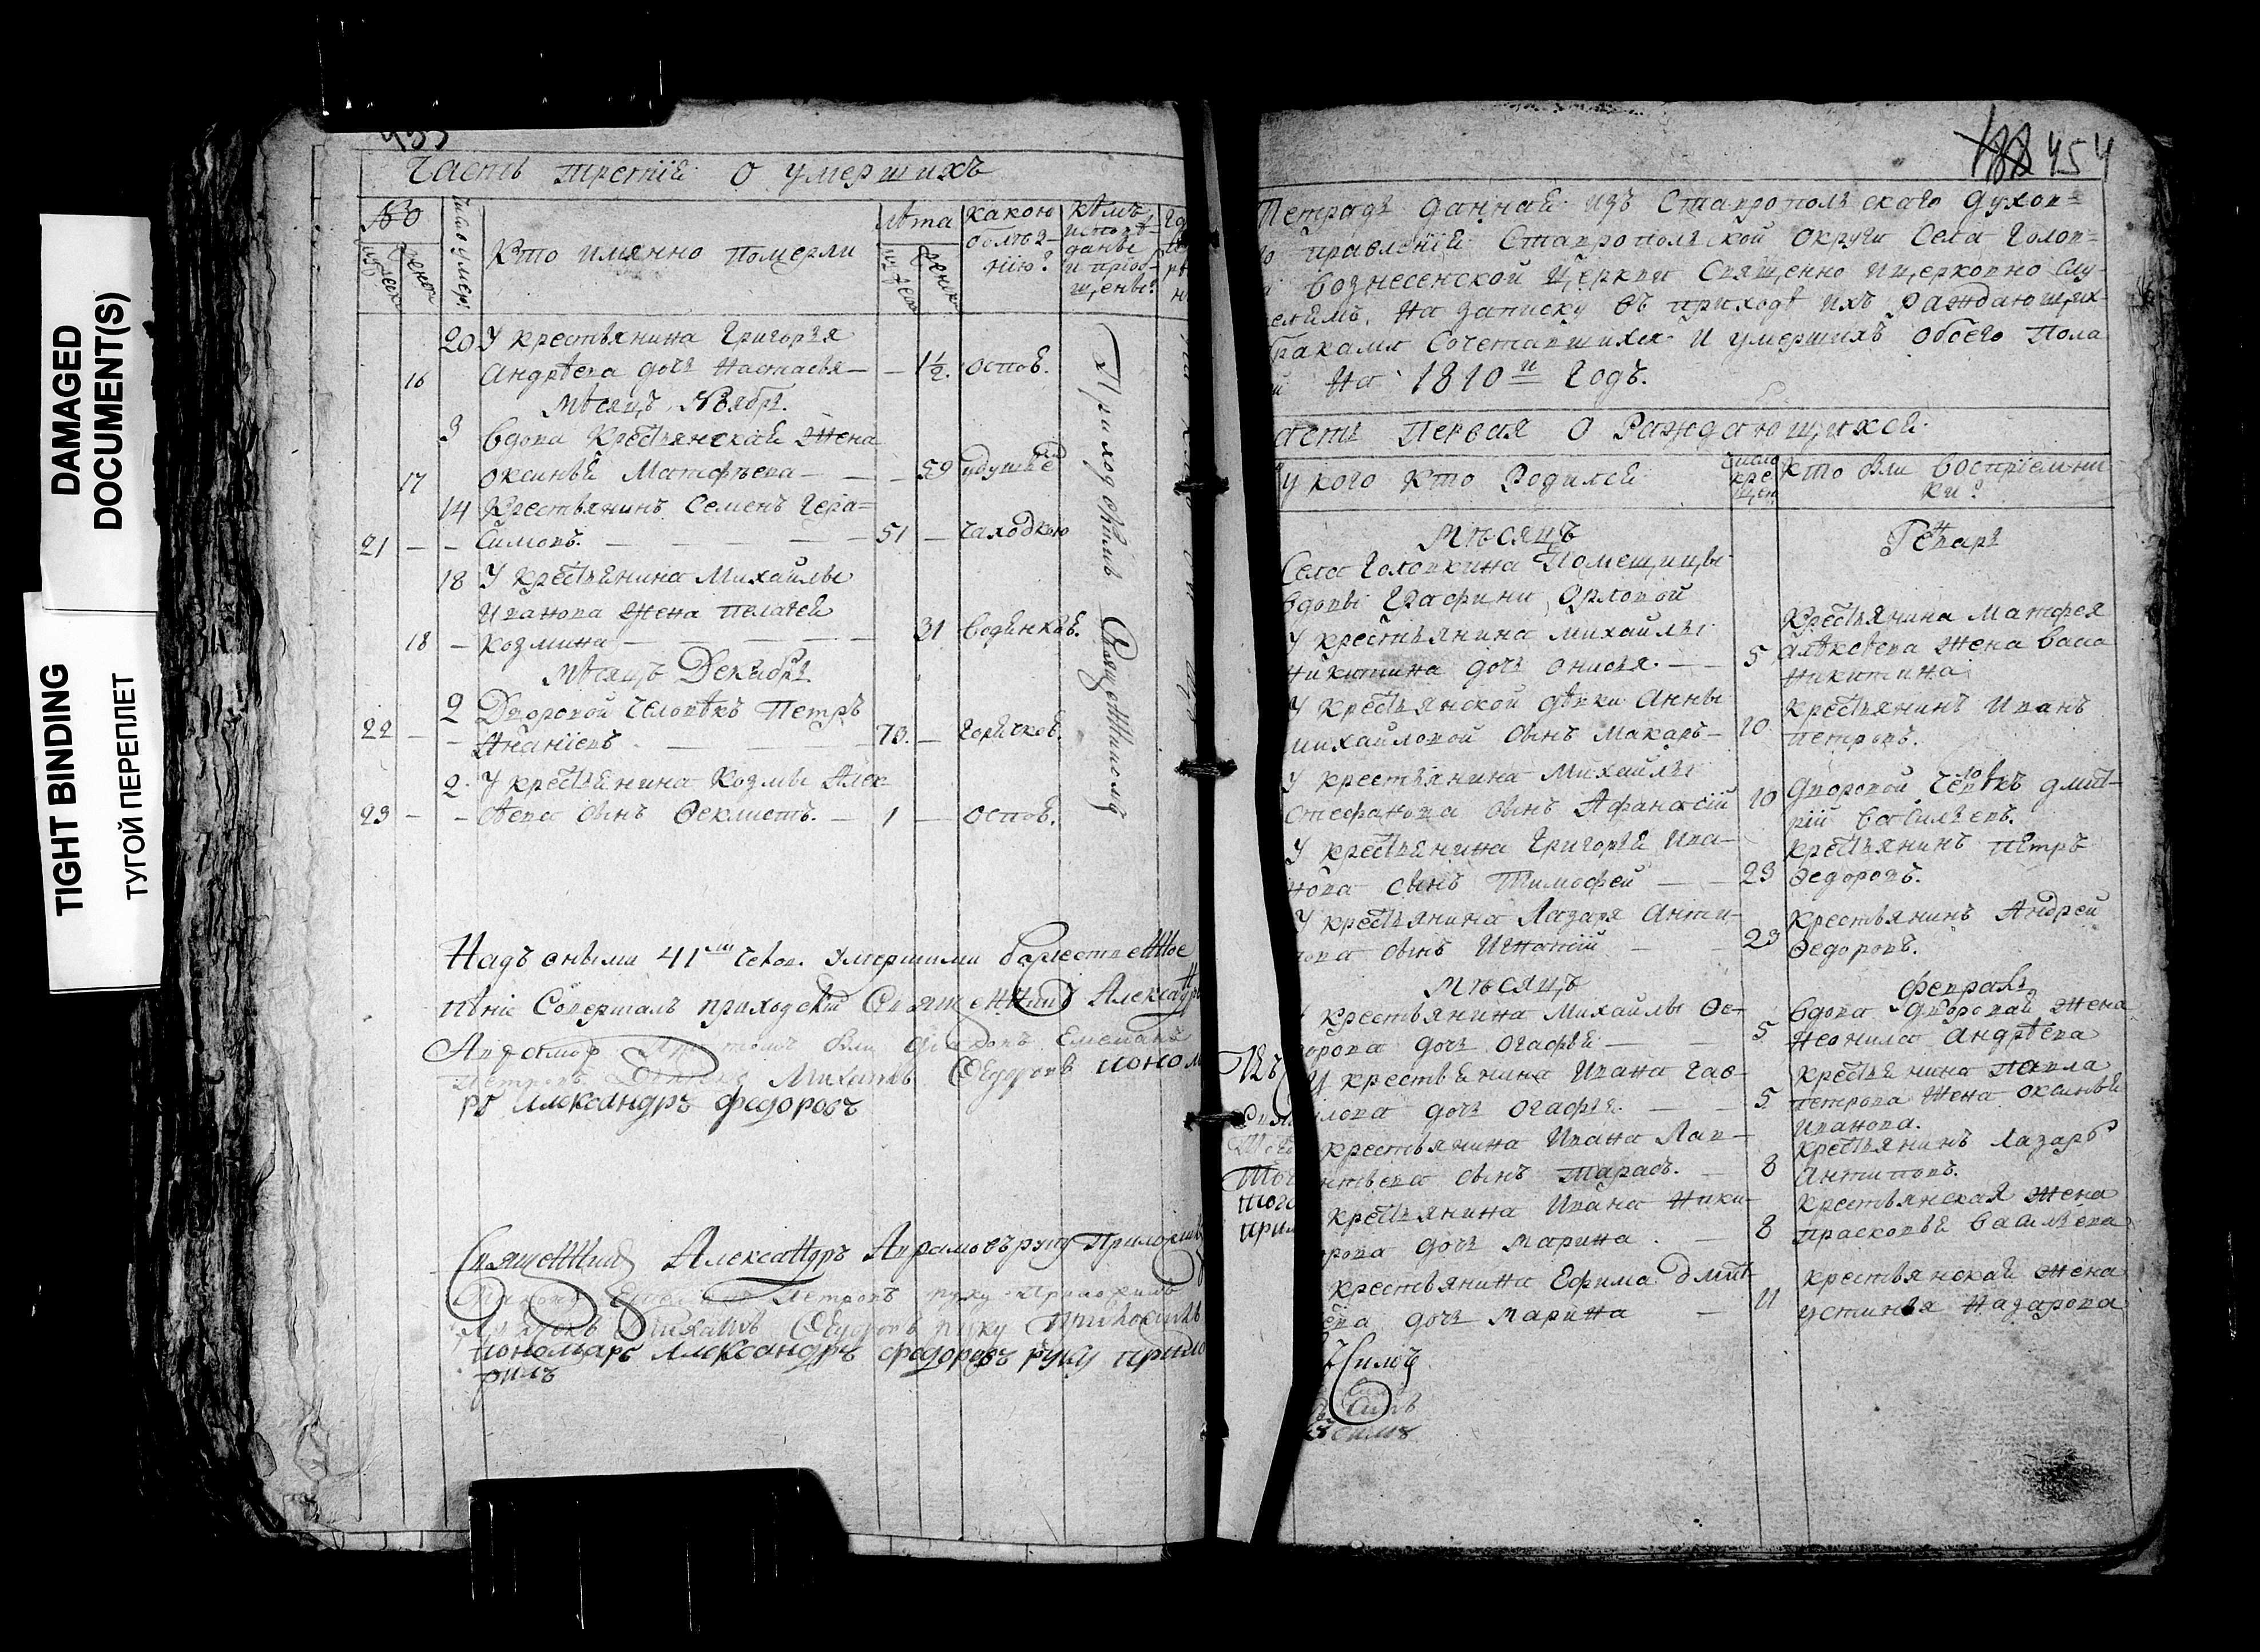 DAMAGED
DOCUMENT(S)
TIGHT BINDING
ТУГОЙ ПЕРЕПЛЕТ
Часть третїя о умершихъ
№
Число умер:
Кто имянно померли
Лѣта
какою
болѣз-
нїю?
кѣмъ
исповѣ-
данвы
и прїоб-
щены?
20 У крестьянина Григорья
16 Андрѣева дочь Настасья — — 1½. оспов.
Мѣсяцъ Ноябрь.
3 Вдова Крестьянская Жена
17 Оксинья Матфѣева — — 59 удушьё
14 Крестьянинъ Семенъ Гера=
21 — — Симовъ. — — — — 51 — чахоткою
18 У крестьянина Михайлы
Иванова жена пелагея
18 — козмина — — — — 31 водянкаѣ.
Мѣсяцъ Декабрь
2 Дворовой человѣкъ Петръ
22 — — Ананїевъ — — — 73. — горячков.
2. У крестьянина Козмы Алек-
23 — — сѣева сынъ Феклистъ. — 1 — оспов.
Приходскимъ Священникомъ
Надъ оными 41 челов. умершими Божественное
пѣнїе Совершалъ приходскій Священникъ Александръ
петровъ Михаилъ Федоровъ поном
рь Александръ федоровъ
Священникъ Александръ Аврамовъ руку Приложилъ
Петровъ руку Приложилъ
Михаилъ Федоровъ руку Приложилъ
пономарь Александръ федоровъ руку прило
жилъ
454
Тетрадь данная изъ Ставропольскаго духов=
правленїя Ставропольской округи Села Голов=
Вознесенской Церкви Священно и церковно слу-
елямъ. На записку въ приходѣ ихъ Раждающих
браками Сочетавшихся и умершихъ обоего пола
На 1810 н Годъ.
асть Первая о Раждающихся.
у кого Кто Родился
Число
кре
щен
кто были воспрїемни
ки?
Мѣсяцъ Генварь
Села Головкина Помещицы
вдовы Графини Орловой
У крестьянина михайлы
Никитина дочь Онисья. — — 5
Крестьянина Матфея
Алѣксѣева жена Васа
Никитина
У Крестьянской дѣвки Анны
михайловой сынъ Макаръ — 10
Крестьянинъ Иванъ
петровъ.
У крестьянина Михайлы
Стефанова сынъ Афанасїй 10
Дворовой человѣкъ дмит-
рїй Васильевъ.
У крестьянина Григорья Ива-
нова сынъ Тимофей — — 23
крестьянинъ петръ
Федоровъ.
У крестьянина Лазаря Анти-
пова сынъ Игнатїй — — 23
Крестьянинъ Андрей
Федоровъ.
Мѣсяцъ февраль
крестьянина Михайлы Фе-
дорова дочь Огафья — — 5
Вдова дворовая жена
Неонила Андрѣева
У крестьянина Ивана Гав-
рилова дочь Огафья. — — 5
крестьянина павла
петрова жена оксинья
иванова.
крестьянина Ивана Лав-
рентьева сынъ Тарасъ. — 8
Крестьянинъ Лазарь
Антиповъ.
крестьянина Ивана Ники-
форова дочь Марина. — 8
крестьянская жена
прасковья васильева
крестьянина Ефима дмит-
рїева дочь Марина — 11
крестьянская жена
устинья Назарова